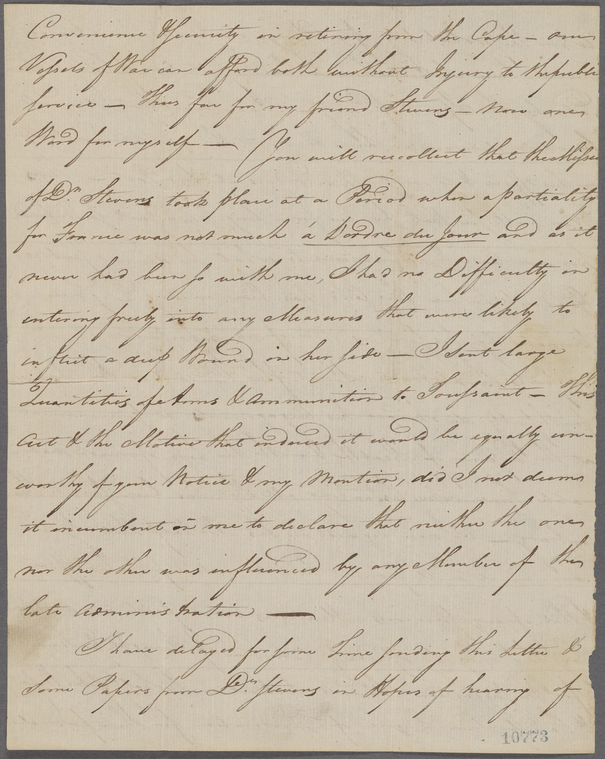 Convenience & Security in retiring from the Cape – our
Vessels of War can afford both without Injury to the public
service – Thus far for my friend Stevens – Now one
Word for myself – You will recollect that the Mission
of Dr. Stevens took place at a Period when a partiality
for France was not much á L'ordre du Jour and as it
never had been so with me, I had no Difficulty in
entering freely into any Measures that were likely to
inflict a deep Wound in her side – I sent large
Quantities of Arms & Ammunition to Toussaint – This
Act & the Motive that induced it would be equally un-
worthy of your Notice & my Mention, did I not deem
it incumbent on me to declare that neither the one
nor the other was influenced by any Member of the
late Administration —
I have delayed for some time sending this letter &
some Papers from Dr. Stevens in Hopes of hearing of
10773